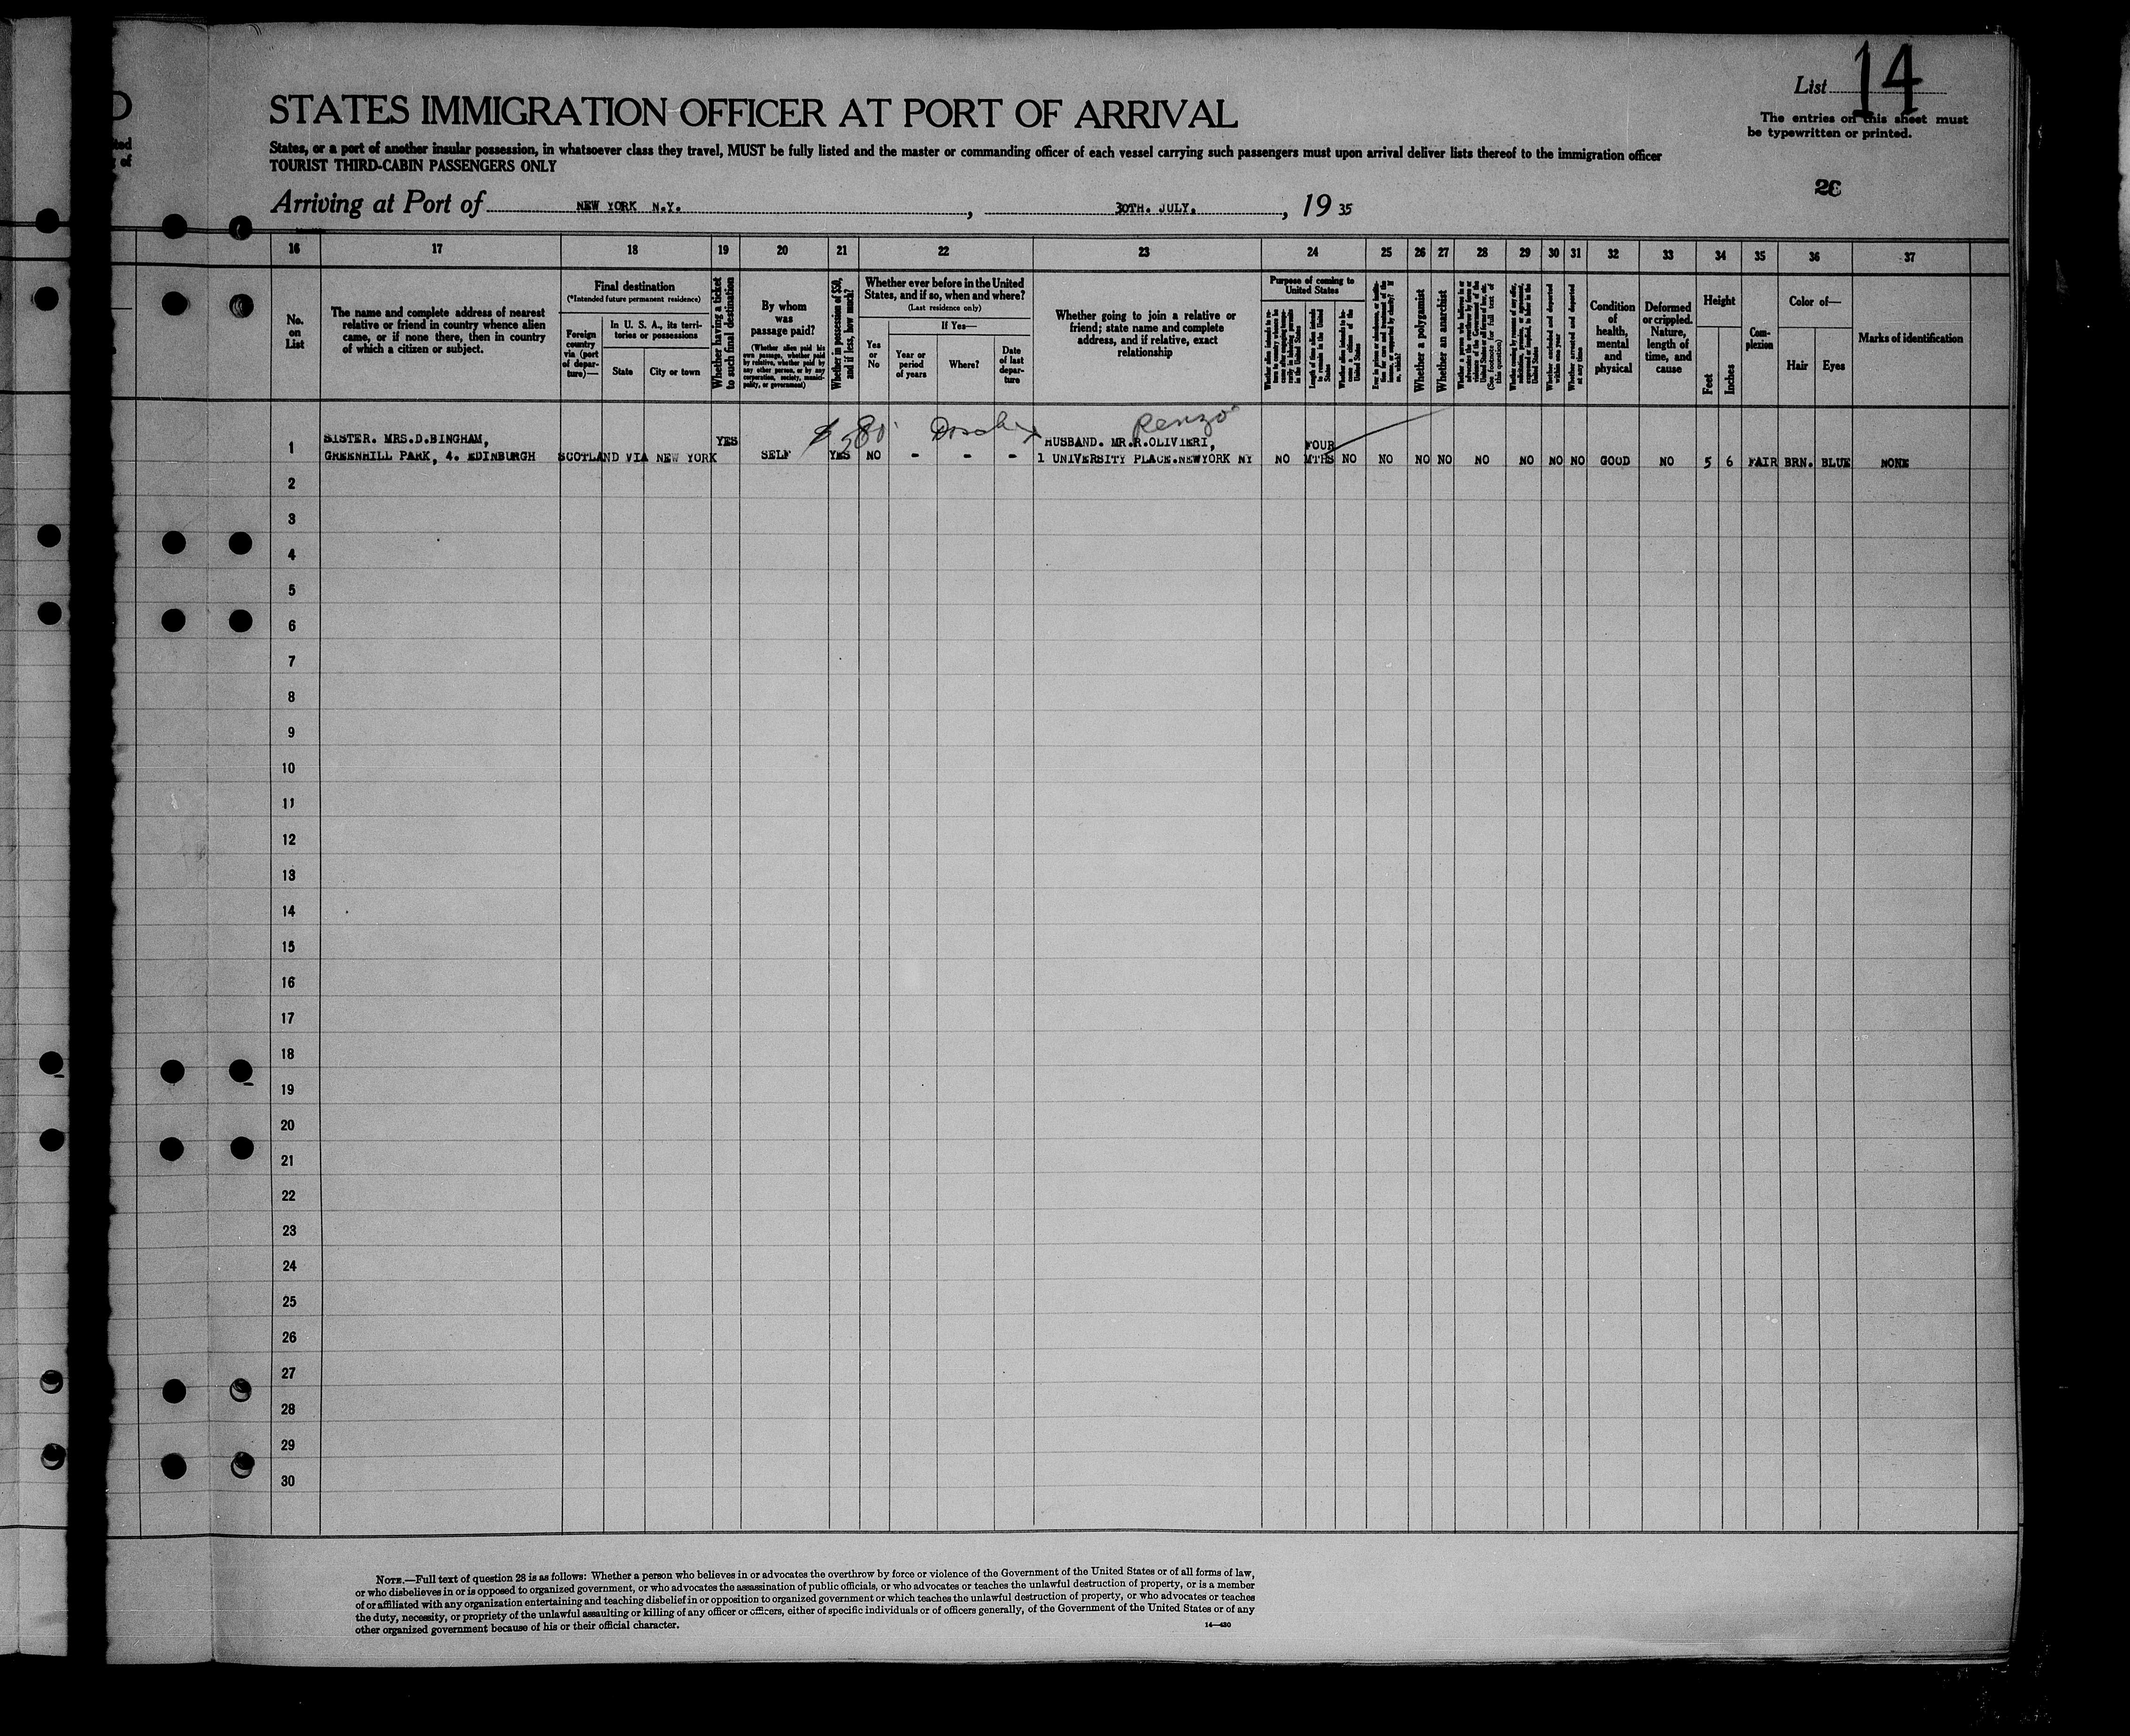 List 14
STATES IMMIGRATION OFFICER AT PORT OF ARRIVAL
The entries on this sheet must
be typewritten or printed.
States, or a port of another insular possession, in whatsoever class they travel, MUST be fully listed and the master or commanding officer of each vessel carrying such passengers must upon arrival deliver lists thereof to the immigration officer
TOURIST THIRD-CABIN PASSENGERS ONLY
Arriving at Port of NEW YORK N.Y., 30TH. JULY., 19 35
16 17 18 19 20 21 22 23 24 25 26 27 28 29 30 31 32 33 34 35 36 37
No.
on
List
The name and complete address of nearest
relative or friend in country whence alien
came, or if none there, then in country
of which a citizen or subject.
Final destination
(*Intended future permanent residence)
Foreign
country
via (port
of depar-
ture)—
In U. S. A., its terri-
tories or possessions
State
City or town
Whether having a ticket
to such final destination
By whom
was
passage paid?
(Whether alien paid his
own passage, whether paid
by relative, whether paid by
any other person, or by any
corporation, society, munici-
pality, or government)
Whether in possession of $50,
and if less, how much?
Whether ever before in the United
States, and if so, when and where?
(Last residence only)
Yes
or
No
If Yes—
Year or
period
of years
Where?
Date
of last
depar-
ture
Whether going to join a relative or
friend; state name and complete
address, and if relative, exact
relationship
Purpose of coming to
United States
Length of time alien intends
to remain in the United
States
Whether alien intends to be-
come a citizen of the
United States
Whether a polygamist
Whether an anarchist
(See footnote for full text of
this question)
Whether excluded and deported
within one year
Whether arrested and deported
at any time
Condition
of
health,
mental
and
physical
Deformed
or crippled.
Nature,
length of
time, and
cause
Height
Feet
Inches
Com-
plexion
Color of—
Hair
Eyes
Marks of identification
Renzo
1 SISTER. MRS.D.BINGHAM, YES HUSBAND. MR.R.OLIVIERI, FOUR
GREENHILL PARK, 4. EDINBURGH SCOTLAND VIA NEW YORK SELF YES NO - - - 1 UNIVERSITY PLACE.NEWYORK NY NO MTHS NO NO NO NO NO NO NO NO GOOD NO 5 6 FAIR BRN. BLUE NONE
2
3
4
5
6
7
8
9
10
11
12
13
14
15
16
17
18
19
20
21
22
23
24
25
26
27
28
29
30
NOTE.—Full text of question 28 is as follows: Whether a person who believes in or advocates the overthrow by force or violence of the Government of the United States or of all forms of law,
or who disbelieves in or is opposed to organized government, or who advocates the assassination of public officials, or who advocates or teaches the unlawful destruction of property, or is a member
of or affiliated with any organization entertaining and teaching disbelief in or opposition to organized government or which teaches the unlawful destruction of property, or who advocates or teaches
the duty, necessity, or propriety of the unlawful assaulting or killing of any officer or officers, either of specific individuals or of officers generally, of the Government of the United States or of any
other organized government because of his or their official character.
14—430